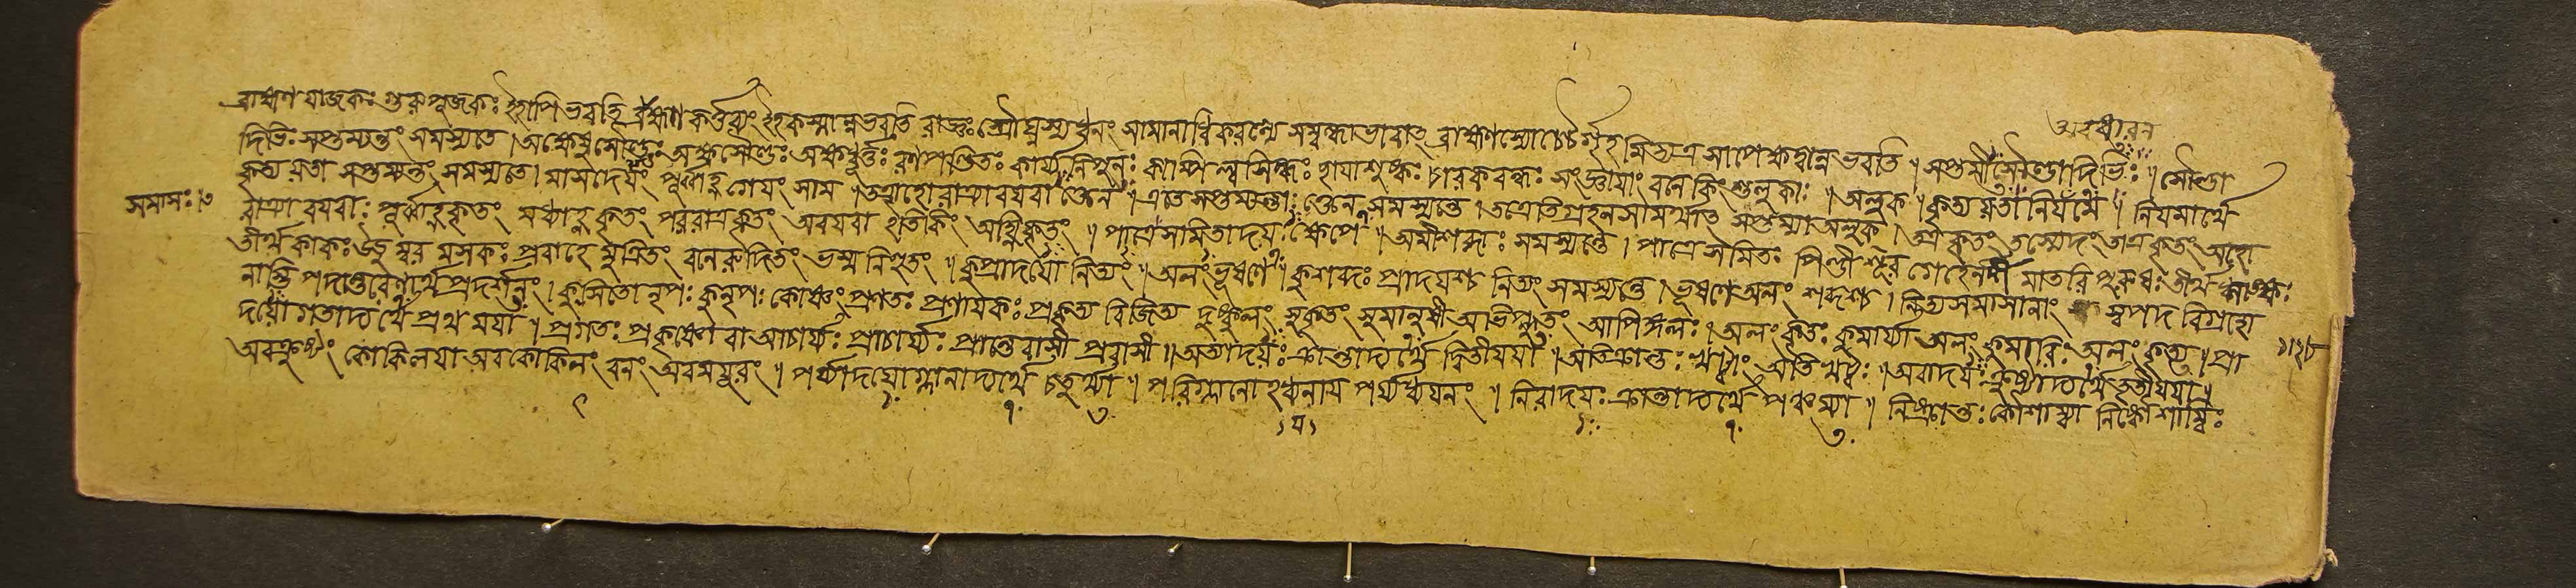 ব্রাহ্মণ যাজকঃ গুরুপূজকঃ ইহাপি ভবতি ব্রাহ্মণ কর্ত্তব্যং ইহ কস্মান্ন ভবতি রাজ্ঞঃ ধনং সামানাধিকরণ্যে সম্বন্ধাভাবাৎ ব্রাহ্মণস্যোচ্চৈর্গৃহমিত্যত্র সাপেক্ষত্বান্ন ভবতি । সপ্তমী সৌণ্ডাদিভিঃ ॥ সৌণ্ডা
অবধারন
দিভিঃ সপ্তম্যন্তং সমস্যতে । অক্ষেষু সৌণ্ডঃ অক্ষসৌণ্ডঃ অক্ষধূর্ত্তঃ রণপণ্ডিতঃ কার্য্যনিপুনঃ কাম্পিল্যসিদ্ধঃ ছায়াশুষ্কঃ চারকবন্ধঃ সংজ্ঞায়াং বনে কিংশুলুকাঃ ॥ অলুক ॥ কৃত্য য়তা নিয়মে ॥ নিয়মার্থে
কৃত্য য়তা সপ্তম্যন্তং সমস্যতে । মাসদেয়ং পূর্ব্বাহ্ণ গেয়ং সাম । তত্রাহোরাত্রাবয়বা ক্তেন ॥ এতে সপ্তম্যন্তাঃ ক্তেন সমস্যন্তে । তত্রেতি গ্রহনসামর্থ্যাৎ সপ্তম্যা অলুক । তত্র কৃতং তস্যেদং তাত্রকৃতং অহো
সমাসঃ ৷৩
রাত্রাবয়বাঃ পূর্ব্বাহ্ণকৃতং মধ্যাহ্ণ কৃতং পররাত্রকৃতং অবয়বা ইতি কিং অহ্নিকৃতং ॥ পাত্রে সমিতাদয়ঃ ক্ষেপে ॥ অমী শব্দাঃ সমস্যন্তে । পাত্রে সমিতঃ পিণ্ডীশূর গেহেনর্দী মাতরি পুরুষঃ তীর্থধ্বাঙ্ক্ষঃ
তীর্থকাকঃ উদুম্বর মসকঃ প্রবাহে মূত্রিতং বনে রুদিতং ভস্মনিহুতং ॥ কুপ্রাদয়ো নিত্যং ॥ অলং ভূষণে ॥ কুশব্দঃ প্রাদয়শ্চ নিত্যং সমস্যন্তে । ভূষণে অলং শব্দশ্চ । নিত্যসমাসানাং স্বপদ বিগ্রহো
নাস্তি পদান্তরেণার্থপ্রদর্শনং । কুৎসিতো নৃপঃ কুনৃপঃ কোষ্ণং প্রণতঃ প্রণায়কঃ প্রকৃত্য বিজিত্য দুষ্কুলং সুকৃতং সুমানুষী অভিষ্টুতং আপিঙ্গলঃ । অলংকৃতঃ কুমার্য্যা অলং কুমারিঃ অলং কৃত্য ॥ প্রা
দয়ো গতাদ্যর্থে প্রথময়া ॥ প্রগতঃ প্রকৃষ্টো বা আচার্য্যঃ প্রাচার্য্যঃ প্রান্তেবাসী প্রবাসী ॥ অত্যাদয়ঃ ক্রান্তাদ্যর্থে দ্বিতীয়য়া ॥ অতিক্রান্তঃ খট্বাং অতিখট্বঃ ॥ অবাদয়ঃ ক্রুষ্টাদ্যর্থে তৃতীয়য়া ॥
অবক্রুষ্টং কোকিলয়া অবকোকিলং বনং অবময়ূরং ॥ পর্য্যাদয়ো গ্লানাদ্যর্থে চতুর্থ্যা ॥ পরিগ্লানোঽধ্যয়নায় পর্য্যধ্যয়নং ॥ নিরাদয়ঃ ক্রান্তাদ্যর্থে পঞ্চম্যা ॥ নিষ্ক্রান্তঃ কৌশাম্ব্যা নিষ্কৌশাম্বিঃ